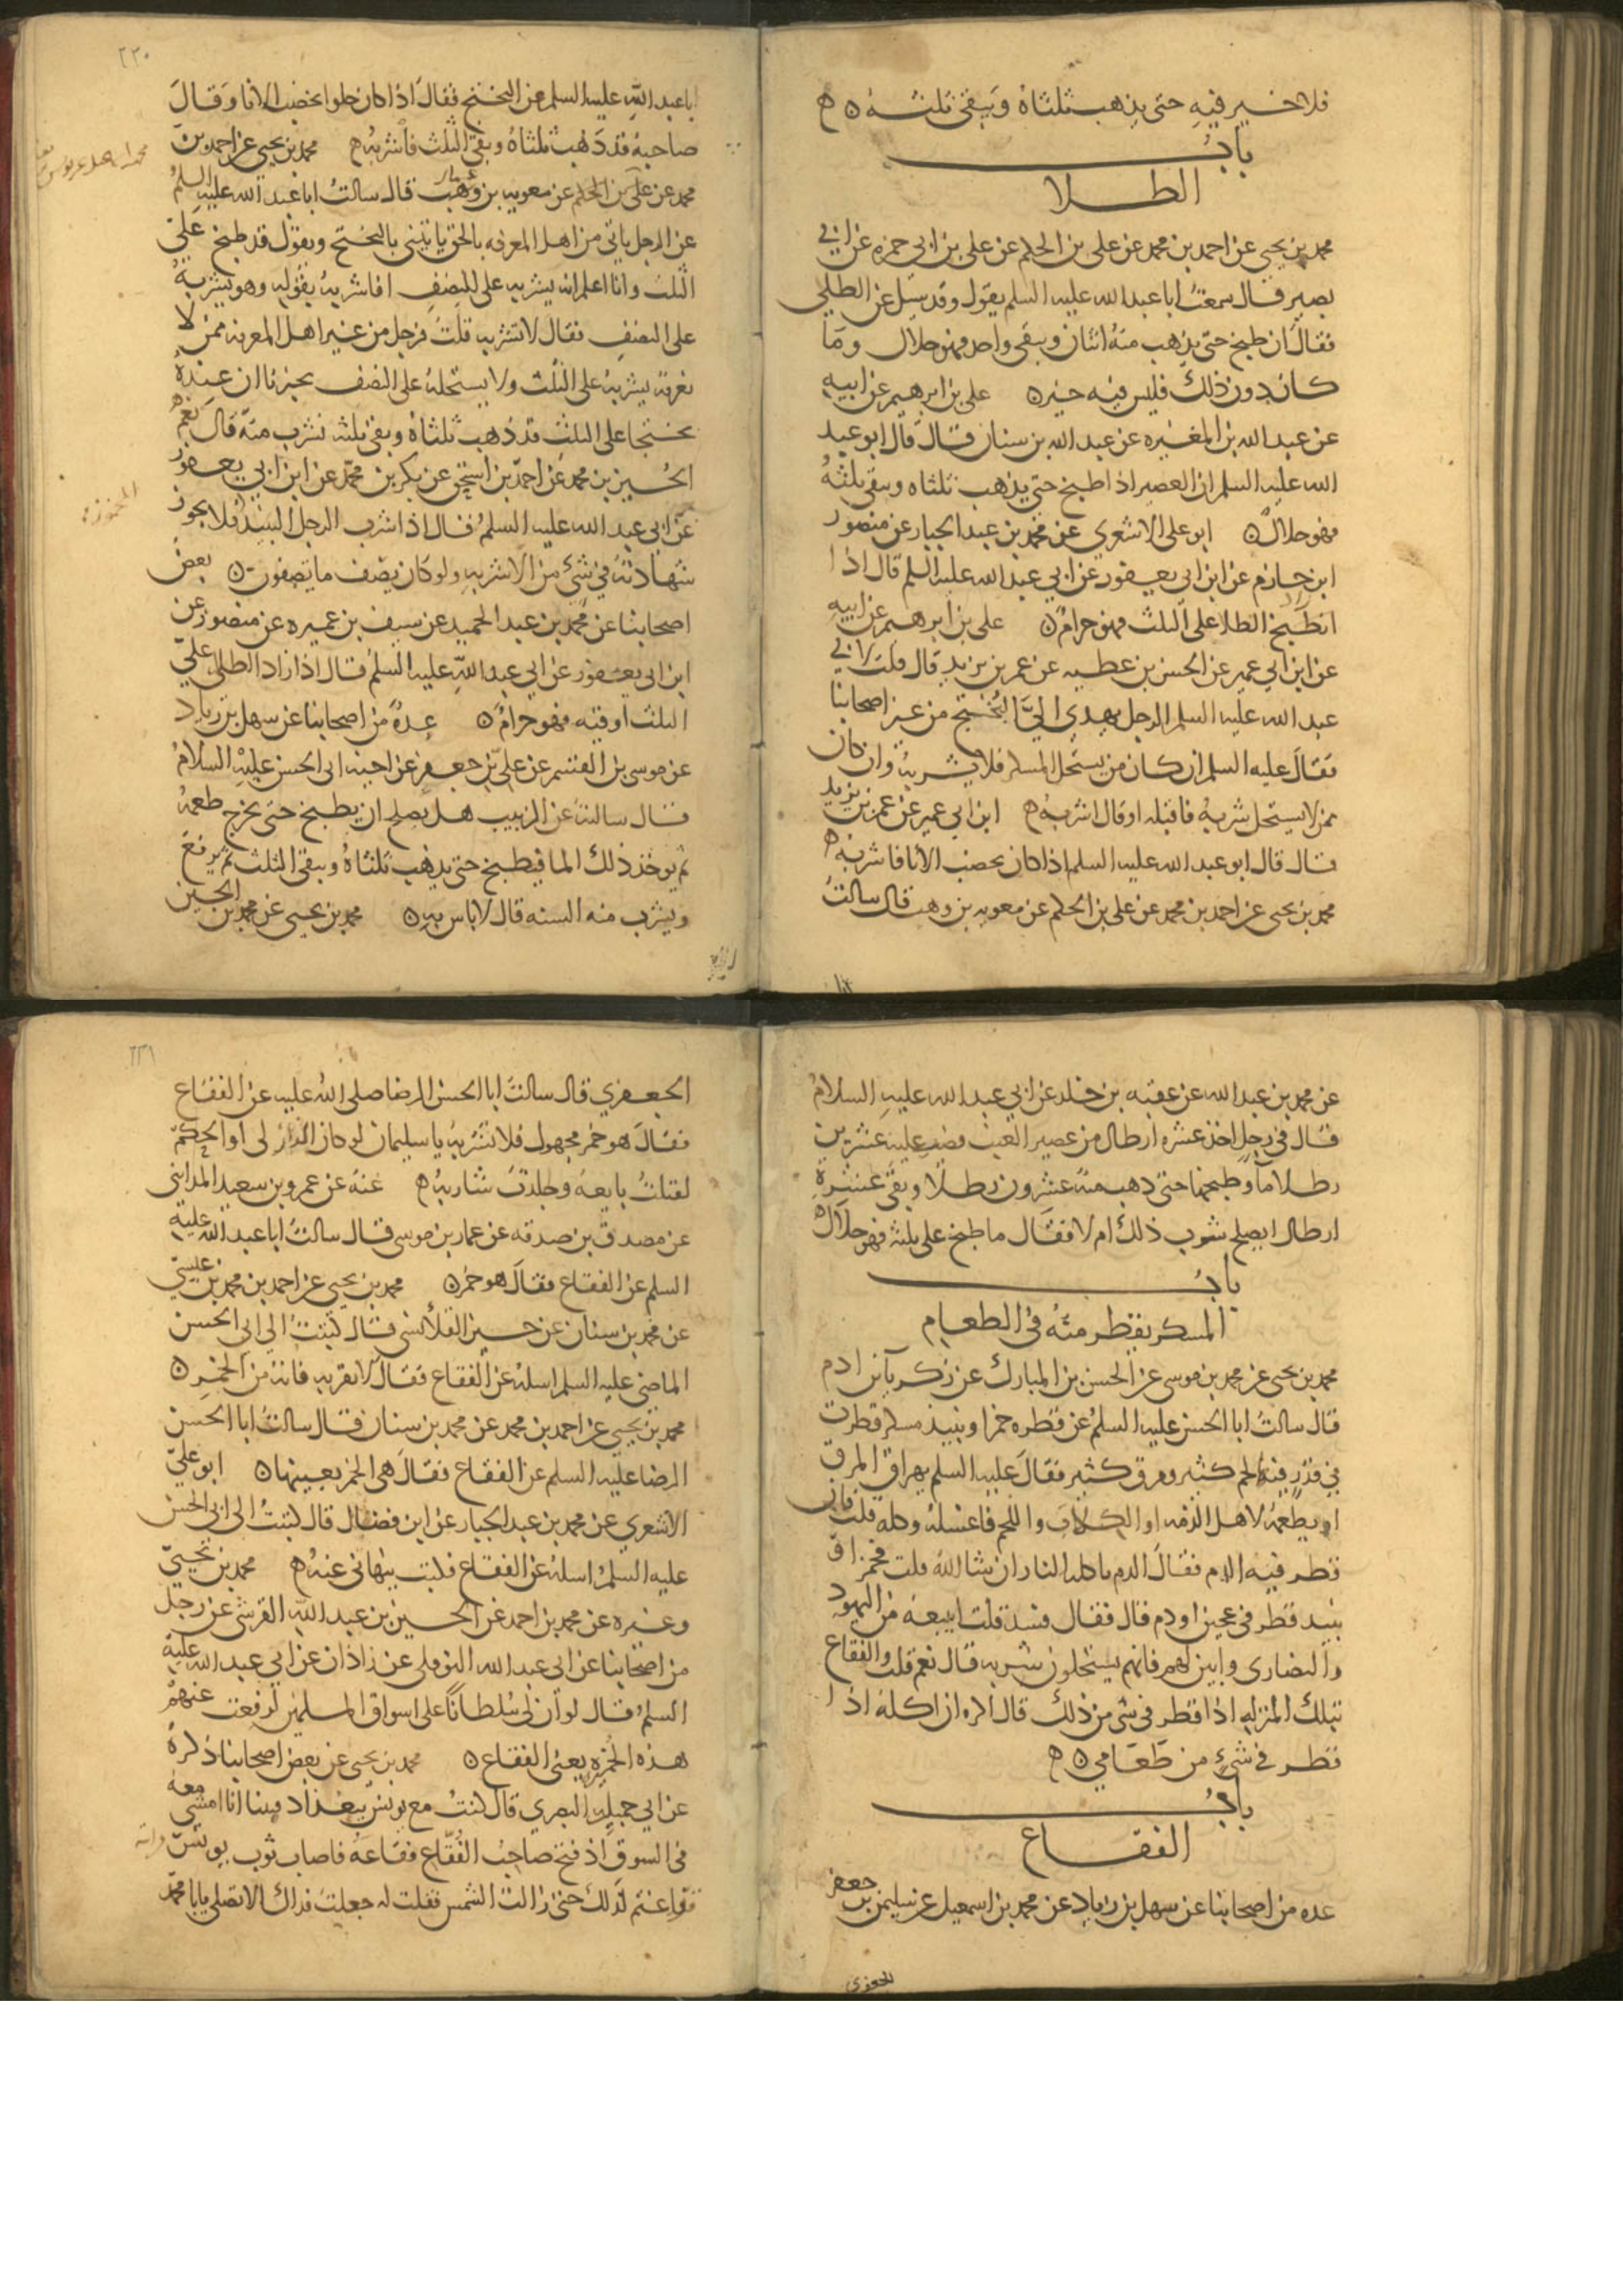 فلا خير فيه حتى يذهب ثلثاه ويبقى ثلثه ه
باب
الطلا
محمد بن يحيى عن احمد بن محمد عن على بن الحكم عن على بن ابى حمزه عن ابي
بصير قال سمعت ابا عبد الله عليه السلم يقول وقد سيل عن الطلى
فقال ان طبخ حتى يذهب منه اثنان ويبقى واحد فهو حلال وما
كان دون ذلك فليس فيه خير ه على بن ابرهيم عن ابيه
عن عبد الله بن المغيره عن عبد الله بن سنان قال قال ابو عبد
الله عليه السلم ان العصير اذا طبخ حتى يذهب ثلثاه ويبقى ثلثه
فهو حلال ه ابو على الاشعري عن محمد بن عبد الجبار عن منصور
ابن حازم عن ابن ابى يعفور عن ابي عبد الله عليه السلم قال اذا
زاد الطلا على الثلث فهو حرام ه على بن ابرهيم عن ابيه
عن ابن ابي عمير عن الحسن بن عطيه عن عمر بن يزيد قال قلت لابي
عبد الله عليه السلم الرجل يهدي الىّ البُختج من غير اصحابنا
فقال عليه السلم ان كان من يستحل المسكر فلا يشربه وان كان
ممن لا يستحل شربه فاقبله او قال اشربه ه ابن ابي عمير عن عمر بن يزيد
قال قال ابو عبد الله عليه السلم اذا كان يخضب الانا فاشربه ه
محمد بن يحيى عن احمد بن محمد عن على بن الحكم عن معويه بن وهب قال سالت
٢٢٠
ابا عبد الله عليه السلم عن البختج فقال اذا كان حلوا يخضب الانا وقال
صاحبه قد ذهب ثلثاه وبقى الثلث فاشربه ه محمد بن يحيى عن احمد بن
محمد عن على بن الحكم عن معويه بن وهب قال سالت ابا عبد الله عليه السلم
عن الرجل ياتي من اهل المعرفه بالحق ياتينى بالبختج ويقول قد طبخ على
الثلث وانا اعلم انه يشربه على النصف افاشربه بقوله وهو يشربه
على النصف فقال لا تشربه قلت فرجل من غير اهل المعرفه ممن لا
نعرفه يشربه على الثلث ولا يستحله على النصف يخبرنا ان عنده
بختجا على الثلث قد ذهب ثلثاه وبقى ثلثه نشرب منه قال نعم ه
الحسين بن محمد عن احمد بن اسحق عن بكر بن محمد عن ابن ابي يعفور
عن ابى عبد الله عليه السلم قال اذا شرب الرجل النبيذ فلا يجوز
شهادته في شئ من الاشربه ولو كان يصف ما تصفون ه بعض
اصحابنا عن محمد بن عبد الحميد عن سيف بن عميره عن منصور عن
ابن ابى يعفور عن ابي عبد الله عليه السلم قال اذا زاد الطلا على
الثلث اوقيه فهو حرام ه عدة من اصحابنا عن سهل بن زياد
عن موسى بن القسم عن على بن جعفر عن اخيه ابى الحسن عليه السلام
قال سالته عن الزبيب هل يصلح ان يطبخ حتى يخرج طعمه
ثم يوخذ ذلك الما فيطبخ حتى يذهب ثلثاه ويبقى الثلث ثم يرفع
ويشرب منه السنه قال لا باس به ه محمد بن يحيى عن محمد بن الحسين
عن محمد بن عبد الله عن عقبه بن خلد عن ابي عبد الله عليه السلام
قال فى رجل اخذ عشره ارطال من عصير العنب فصب عليه عشرين
رطلا ما وطبخها حتى ذهب منه عشرون رطلا وبقى عشرة
ارطال ايصلح شرب ذلك ام لا فقال ما طبخ على ثلثه فهو حلال ه
باب
المسكر يقطر منه فى الطعام
محمد بن يحيى عن محمد بن موسى عن الحسن بن المبارك عن زكريا بن ادم
قال سالت ابا الحسن عليه السلم عن قطره خمر او نبيذ مسكر قطرت
في قدر فيه لحم كثير ومرق كثير فقال عليه السلم يهراق المرق
او يطعمه لاهل الذمه او الكلاب واللحم فاغسله وكله قلت فان
قطر فيه الدم فقال الدم ياكله النار ان شا الله قلت فخمر او
نبيذ قطر فى عجين او دم قال فقال فسد قلت ابيعه من اليهود
والنصارى وابين لهم فانهم يستحلون شربه قال نعم قلت والفقاع
بتلك المنزله اذا قطر فى شى من ذلك قال اكره ان اكله اذا
قطر في شئ من طعامي ه
باب
الفقاع
عده من اصحابنا عن سهل بن زياد عن محمد بن اسمعيل عن سليمن بن جعفر
الجعفرى
٢٢١
الجعفري قال سالت ابا الحسن الرضا صلى الله عليه عن الفقاع
فقال هو خمر مجهول فلا تشربه يا سليمان لو كان الدار لى او الحكم
لقتلت بايعه وجلدت شاربه ه عنه عن عمرو بن سعيد المداينى
عن مصدق بن صدقه عن عمار بن موسى قال سالت ابا عبد الله عليه
السلم عن الفقاع فقال هو خمر ه محمد بن يحيى عن احمد بن محمد بن عيسى
عن محمد بن سنان عن حسين القلانسى قال كتبت الى ابى الحسن
الماضى عليه السلم اسله عن الفقاع فقال لا تقربه فانه من الخمر ه
محمد بن يحيى عن احمد بن محمد عن محمد بن سنان قال سالت ابا الحسن
الرضا عليه السلم عن الفقاع فقال هى الخمر بعينها ه ابو على
الاشعري عن محمد بن عبد الجبار عن ابن فضال قال كتبت الى ابى الحسن
عليه السلم اسله عن الفقاع فكتب ينهانى عنه ه محمد بن يحيى
وغيره عن محمد بن احمد عن الحسين بن عبد الله القرشى عن رجل
من اصحابنا عن ابى عبد الله النوفلى عن زاذان عن ابي عبد الله عليه
السلم قال لو ان لى سلطانا على اسواق المسلمين لرفعت عنهم
هذه الخمره يعنى الفقاع ه محمد بن يحيى عن بعض اصحابنا ذكره
عن ابي جميله البصري قال كنت مع يونس ببغداد فبينا انا امشى معه
فى السوق اذ فتح صاحب الفقاع فقاعه فاصاب ثوب يونس
فاغتم لذلك حتى زالت الشمس فقلت له جعلت فداك الا تصلى يابا محمد